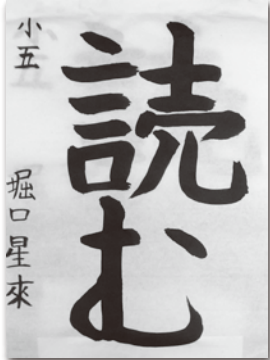 読む
小五
堀口星來